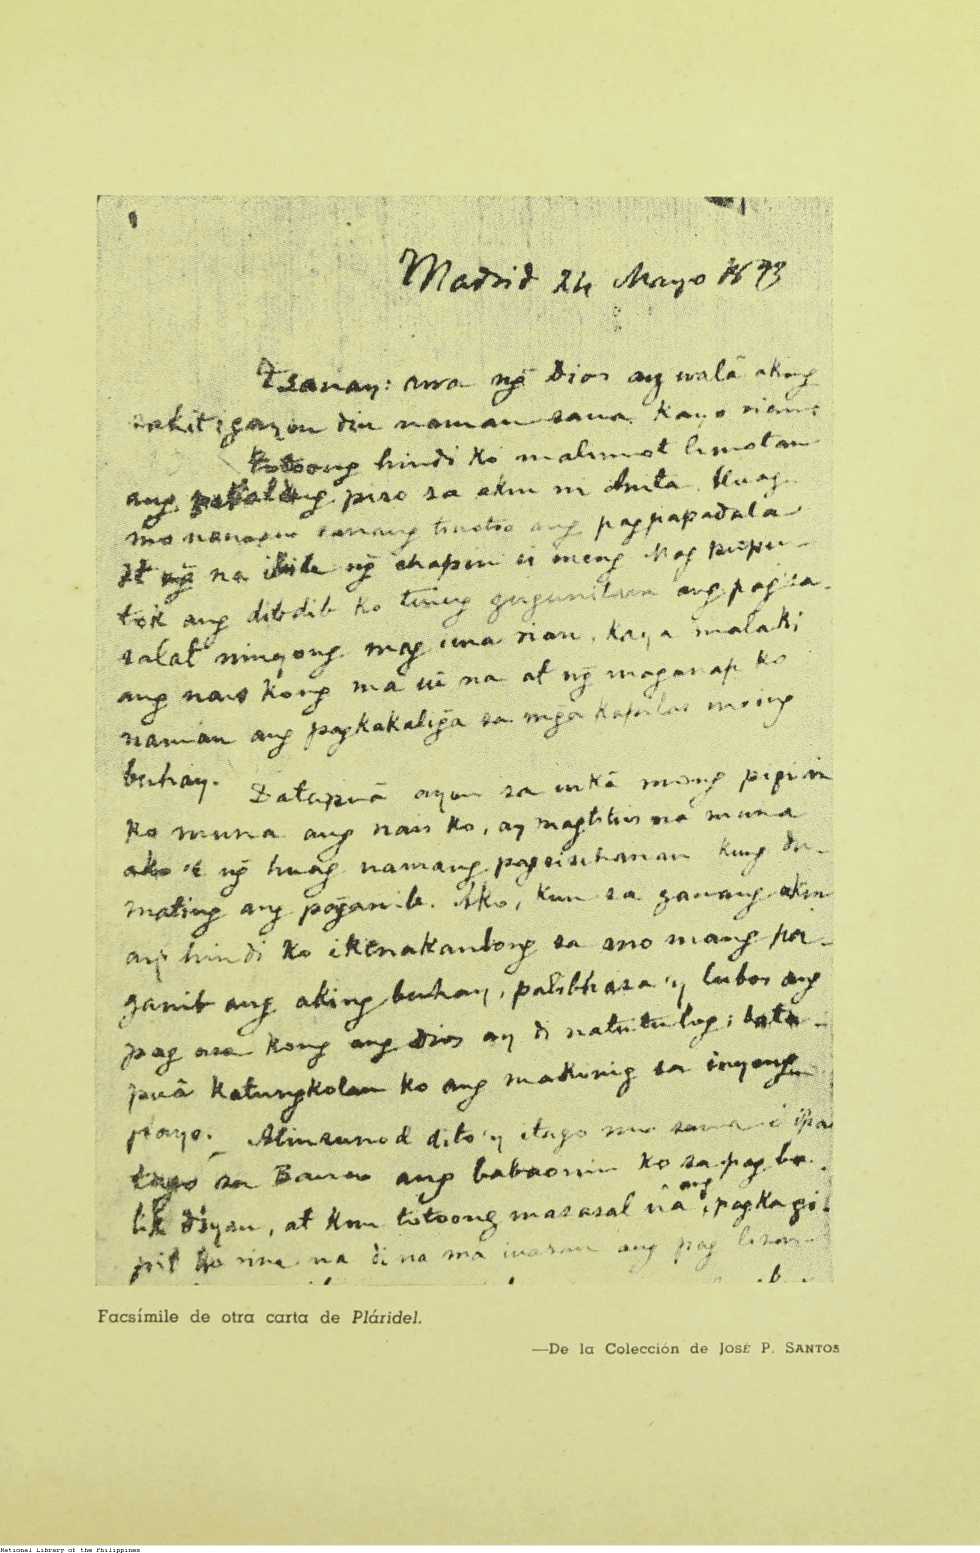 Madrid 24 Mayo 1893
Tsanay: awa ng̃ Dios ay walâ aking
sakit; gayon din naman sana kayo riang
totoong hindi ko malimot limotan
ang piso sa akin ni Anita. Huag
mo sanang ang pagpapadala
At ng̃ na ng̃ chapin si
tok ang dibdib ko gugunitain ang pagsa-
salat ninyong mag iina rian. Kaya malaki
ang nais kong ma uî na at ng̃ maganap ko
naman ang pagkakaling̃a sa mg̃a kapilas
buhay.
Datapuâ ayon sa ibig mong pigilin
ko muna ang nais ko, ay magtitiis na muna
ako't ng̃ huag namang pagsisihanan kung du-
mating ang pang̃anib. Ako, kun sa ganang akin
ay hindi ko ikinakanlong sa ano mang pa-
ganib ang aking buhay, palibhasa'y lubos ang
pag asa kong ang Dios ay di natutulog; data-
puâ katungkolan ko ang makinig sa inyong
payo. Alinsunod dito'y itago mo sana ó ipa
tago sa Banco ang babaonin ko sa pag ba-
lik diyan, at kun totoong masasal na ang pagka gi-
pit ko rine na di na ma iwasan ang pag
Facsímile de otra carta de Pláridel.
—De la Colección de José P. Santos
National Library of the Philippines